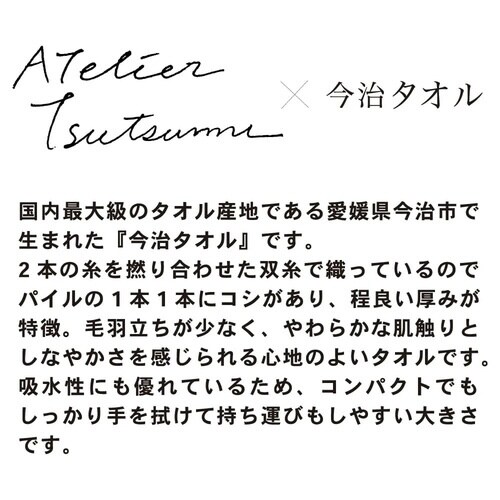 Atelier
Tsutsumi × 今治タオル
国内最大級のタオル産地である愛媛県今治市で
生まれた『今治タオル』です。
2本の糸を撚り合わせた双糸で織っているので
パイルの1本1本にコシがあり、程良い厚みが
特徴。毛羽立ちが少なく、やわらかな肌触りと
しなやかさを感じられる心地のよいタオルです。
吸水性にも優れているため、コンパクトでも
しっかり手を拭けて持ち運びもしやすい大きさ
です。